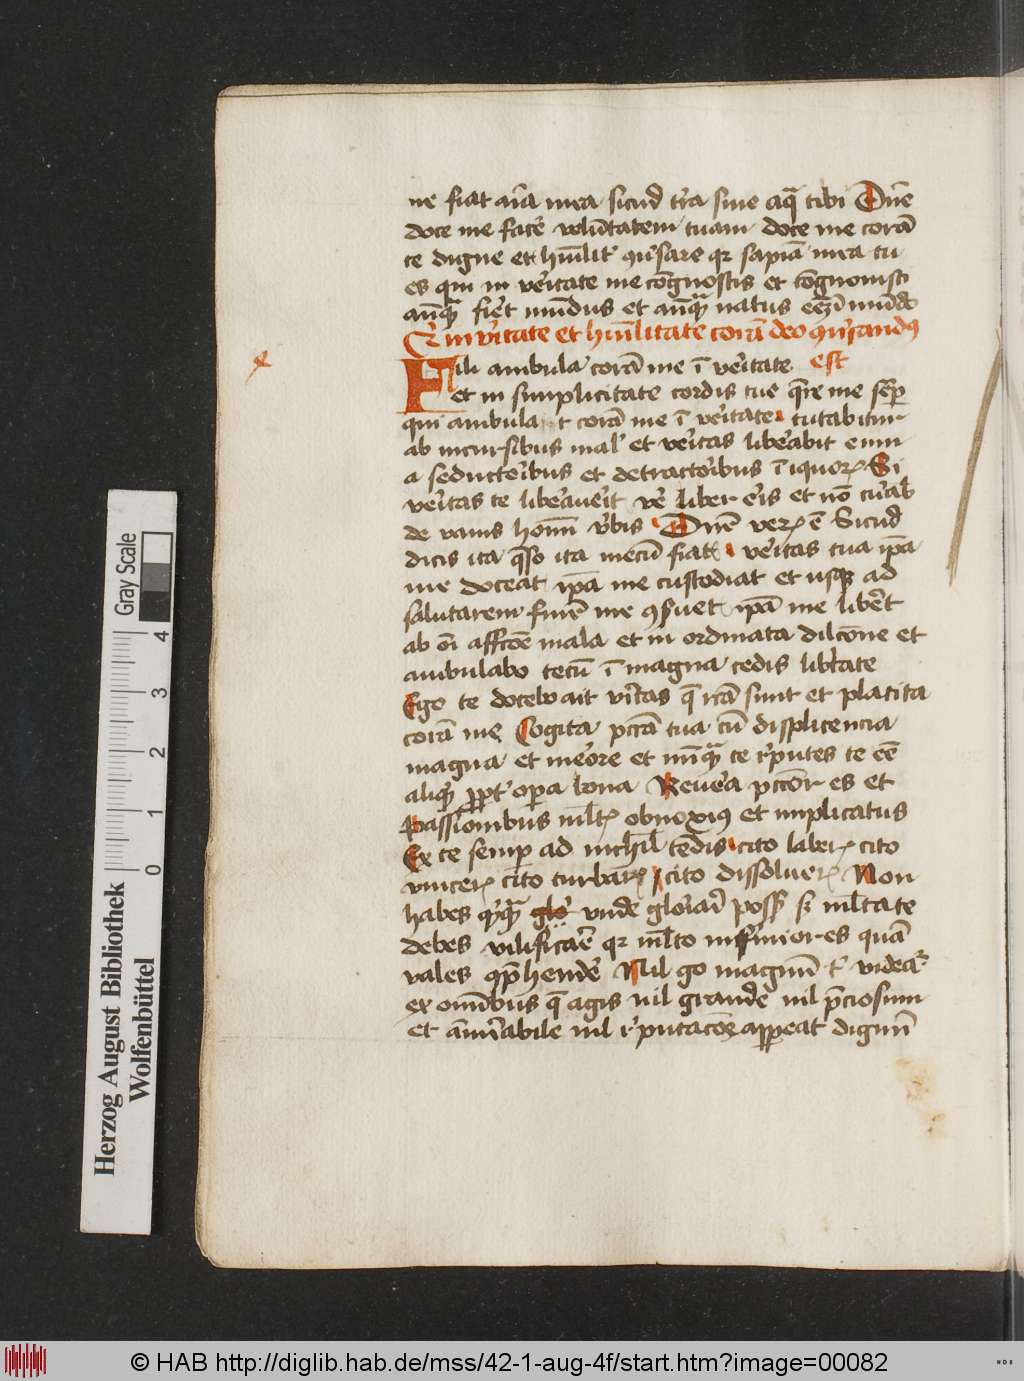 ne fiat aīa mea sicud t'ra sine aqª tibi Dn̄e
doce me facē volūtatem tuam doce me corā
te digne et hūilit' ꝯu'sare qr sapīa mea tu
es qui in ve'itate me cōgnoscis et cōgnouisti
anq̄ꝫ fie't mūdus et anq̄ꝫ natus eēm ī mūdo
Qꝫ in v'itate et hūilitate corā deo ꝯu'sandū
est
Fili ambula corā me ī ve'itate
et in simplicitate cordis tue q̄re me sēꝑ
qui ambulat corā me ī ve'itate tutabitur
ab incursibus mal' et ve'itas libe'abit eum
a seducto'ibus et detracto'ibus iniquoꝝ Si
ve'itas te libe'aue'it ve' liber e'is et nō cu'ab'
de vanis homī v'bis Dn̄e veꝝ ē Sicud
dicis ita q̄so ita mecū fiat ve'itas tua ip̄a
me doceat ip̄a me custodiat et usqꝫ ad
salutarem finē me ꝯse'uet ip̄a me libe't
ab oī affc̄cōe mala et inordinata dilcōne et
ambulabo tecū ī magna cordis lib'tate
Ego te docebo ait v'itas q̄ rc̄a sunt et placita
corā me Cogita pc̄c̄a tua cū displicencia
magna et me'ore et nūq̄ꝫ te r'putes te eē
aliqͥd ꝓpt' oꝑa bona Reue'a pc̄cōr es et
passionibus ml't' obnoxius et implicatus
Ex te semꝑ ad nichil tēdis cito laber' cito
vincer' cito turbar' cito dissoluer' Non
habes qͥcqª glo' unde glo'iari poss' sꝫ ml'ta te
debes vilificare qr ml'to infirmior es quā
vales ꝯp̄hendē Nil g̊o magnū t' videat'
ex omībus q̄ agis nil grande nil p̄ciosum
et am̄irabile nil r'putacōe appareat dignū
x
Herzog August Bibliothek
Wolfenbüttel
Gray Scale
0 1 2 3 4
© HAB http://diglib.hab.de/mss/42-1-aug-4f/start.htm?image=00082